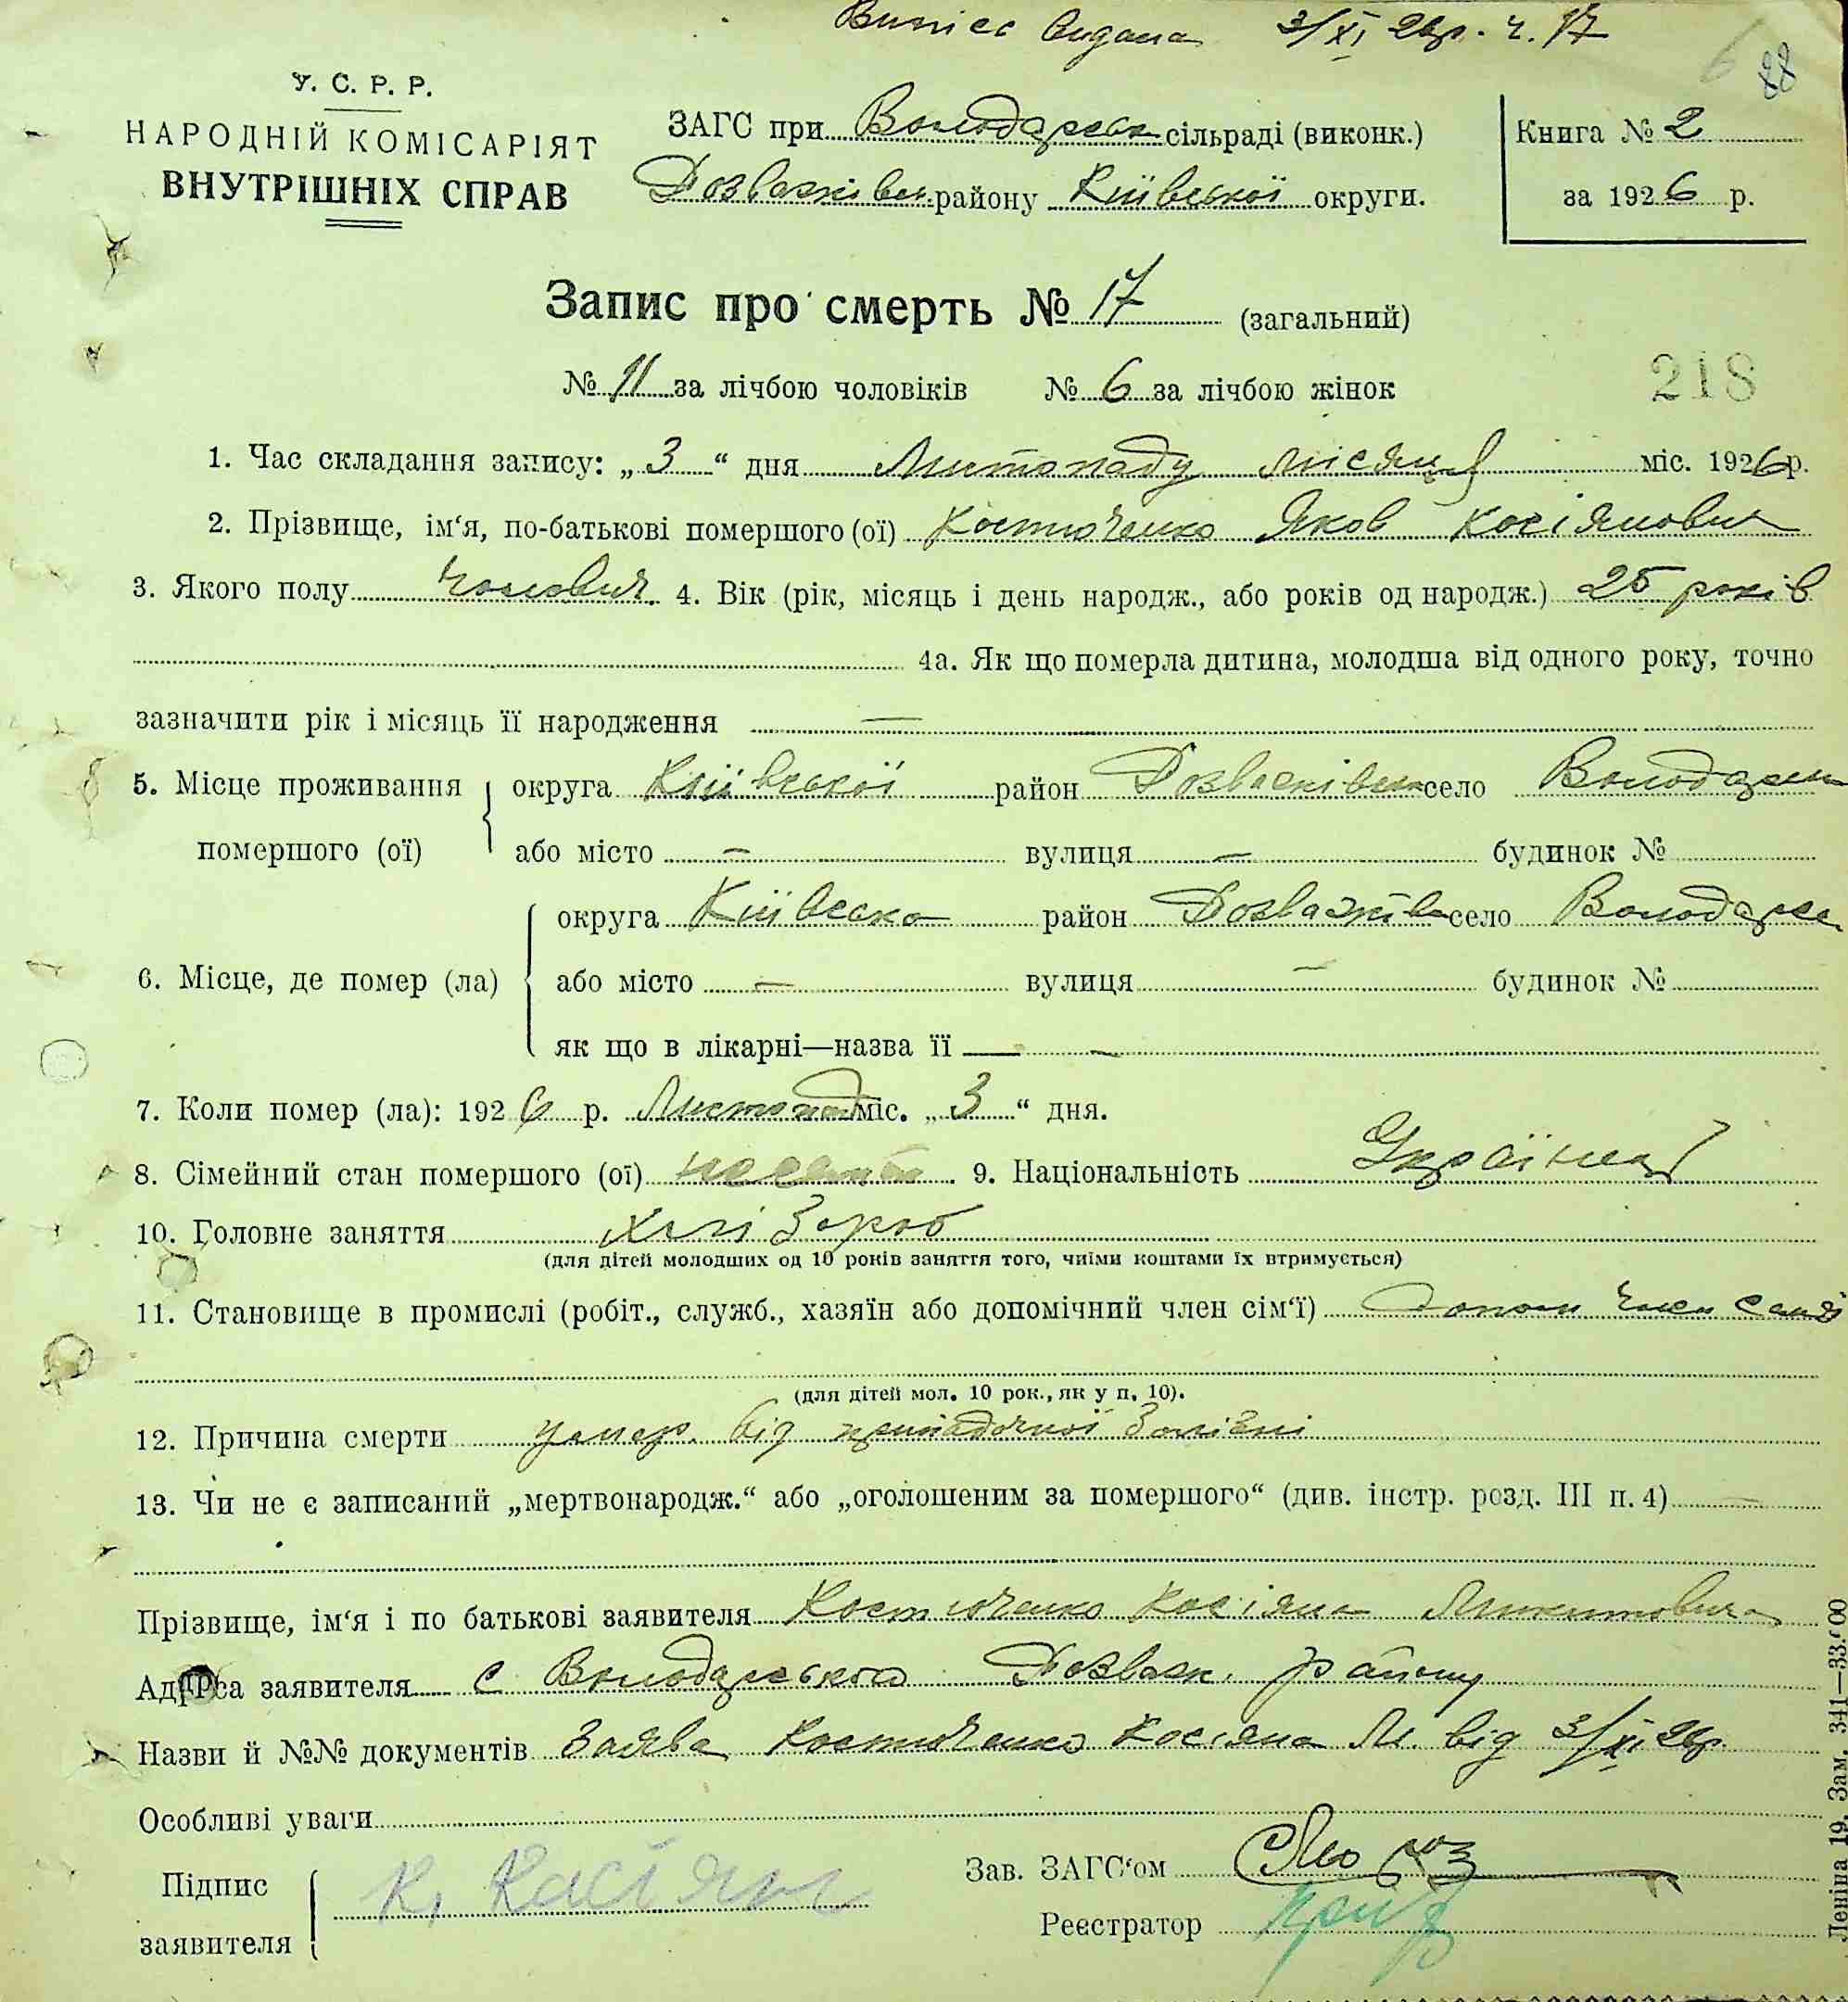 Витяг видана 3/XI 26р. ч. 17
88
У. С. Р. Р.
НАРОДНІЙ КОМІСАРІЯТ
ВНУТРІШНІХ СПРАВ
ЗАГС при Володарськ сільраді (виконк.)
Розважівськ району Київської округи.
Книга № 2
за 1926 р.
Запис про смерть № 17 (загальний)
№ 11 за лічбою чоловіків № 6 за лічбою жінок
218
1. Час складання запису: „3“ дня Листопаду місяця міс. 1926р.
2. Прізвище, ім‘я, по-батькові помершого (ої) Костюченко Яков Косіянович
3. Якого полу чоловіч. 4. Вік (рік, місяць і день народж., або років од народж.) 25 років
4а. Як що померла дитина, молодша від одного року, точно
зазначити рік і місяць її народження —
5. Місце проживання помершого (ої) округа Київської район Розважівськ село Володарськ
або місто — вулиця — будинок №
6. Місце, де помер (ла) округа Київсько район Розважівс село Володарсь
або місто — вулиця — будинок №
як що в лікарні—назва її — —
7. Коли помер (ла): 1926 р. Листопад міс. „3“ дня.
8. Сімейний стан помершого (ої) 9. Національність Українец
10. Головне заняття Хлібороб
(для дітей молодших од 10 років заняття того, чиїми коштами їх втримується)
11. Становище в промислі (робіт., служб., хазяїн або допомічний член сім‘ї) Допом член семї
(для дітей мол. 10 рок., як у п. 10).
12. Причина смерти умер. від припадочної болізні
13. Чи не є записаний „мертвонародж.“ або „оголошеним за помершого“ (див. інстр. розд. III п. 4) —
Прізвище, ім‘я і по батькові заявителя Костюченко Косіяна Микитовича
Адреса заявителя с Володарського Розваж. району
Назви й №№ документів Заява Костюченко Косіяна М. від 3/XI 26р.
Особливі уваги
Підпис заявителя К. Касіян
Зав. ЗАГС‘ом
Реєстратор
Леніна 19. Зам. 341—33.00